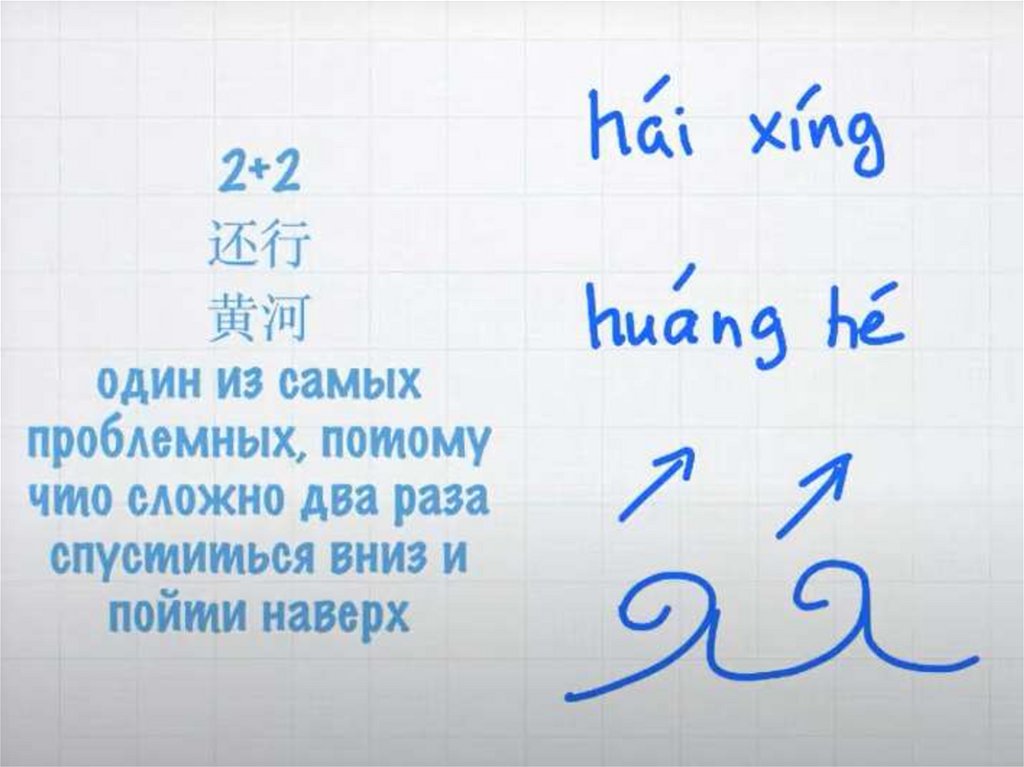 2+2
还行
黄河
один из самых
проблемных, потому
что сложно два раза
спуститься вниз и
пойти наверх
hái xíng
huáng hé